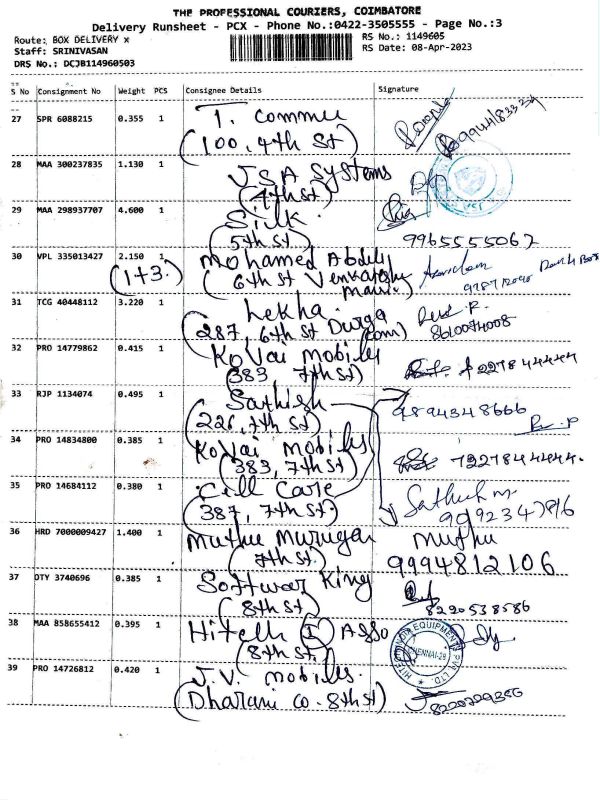 THE PROFESSIONAL COURIERS, COIMBATORE
Delivery Runsheet - PCX - Phone No.:0422-3505555 - Page No.:3
Route: BOX DELIVERY x
RS No.: 1149605
Staff: SRINIVASAN
RS Date: 08-Apr-2023
DRS No.: DCJB114960503
S No Consignment No Weight PCS Consignee Details Signature
27 SPR 6088215 0.355 1 T. Commu
(100, 4th St)
28 MAA 300237835 1.130 1 JSA Systems
(4th st)
29 MAA 298937707 4.600 1 Silk.
(5th st) 9965555062
30 VPL 335013427 2.150 1 Mohamed Abdul
(1+3.) (6th St Venkatesh
31 TCG 40448112 3.220 1 Lekha.
(287, 6th St Durga 8610074008
32 PRO 14779862 0.415 1 Kovai mobiles
(383 7th st)
33 RJP 1134074 0.495 1 Sathish 9894348666
(226, 7th st)
34 PRO 14834800 0.385 1 Kovai mobiles
(383, 7th st) 7227844444.
35 PRO 14684112 0.380 1 Cell Care Sathish m.
(387, 7th st)
36 HRD 7000009427 1.400 1 Muthu Murugan Muthu
(7th st) 9994812106
37 DTY 3740696 0.385 1 Softwar King
(8th st) 8220538586
38 MAA 858655412 0.395 1 Hitech (I) Asso
(8th st,) CHENNAI-29
39 PRO 14726812 0.420 1 J.V. mobiles.
(Dharani co. 8th st)